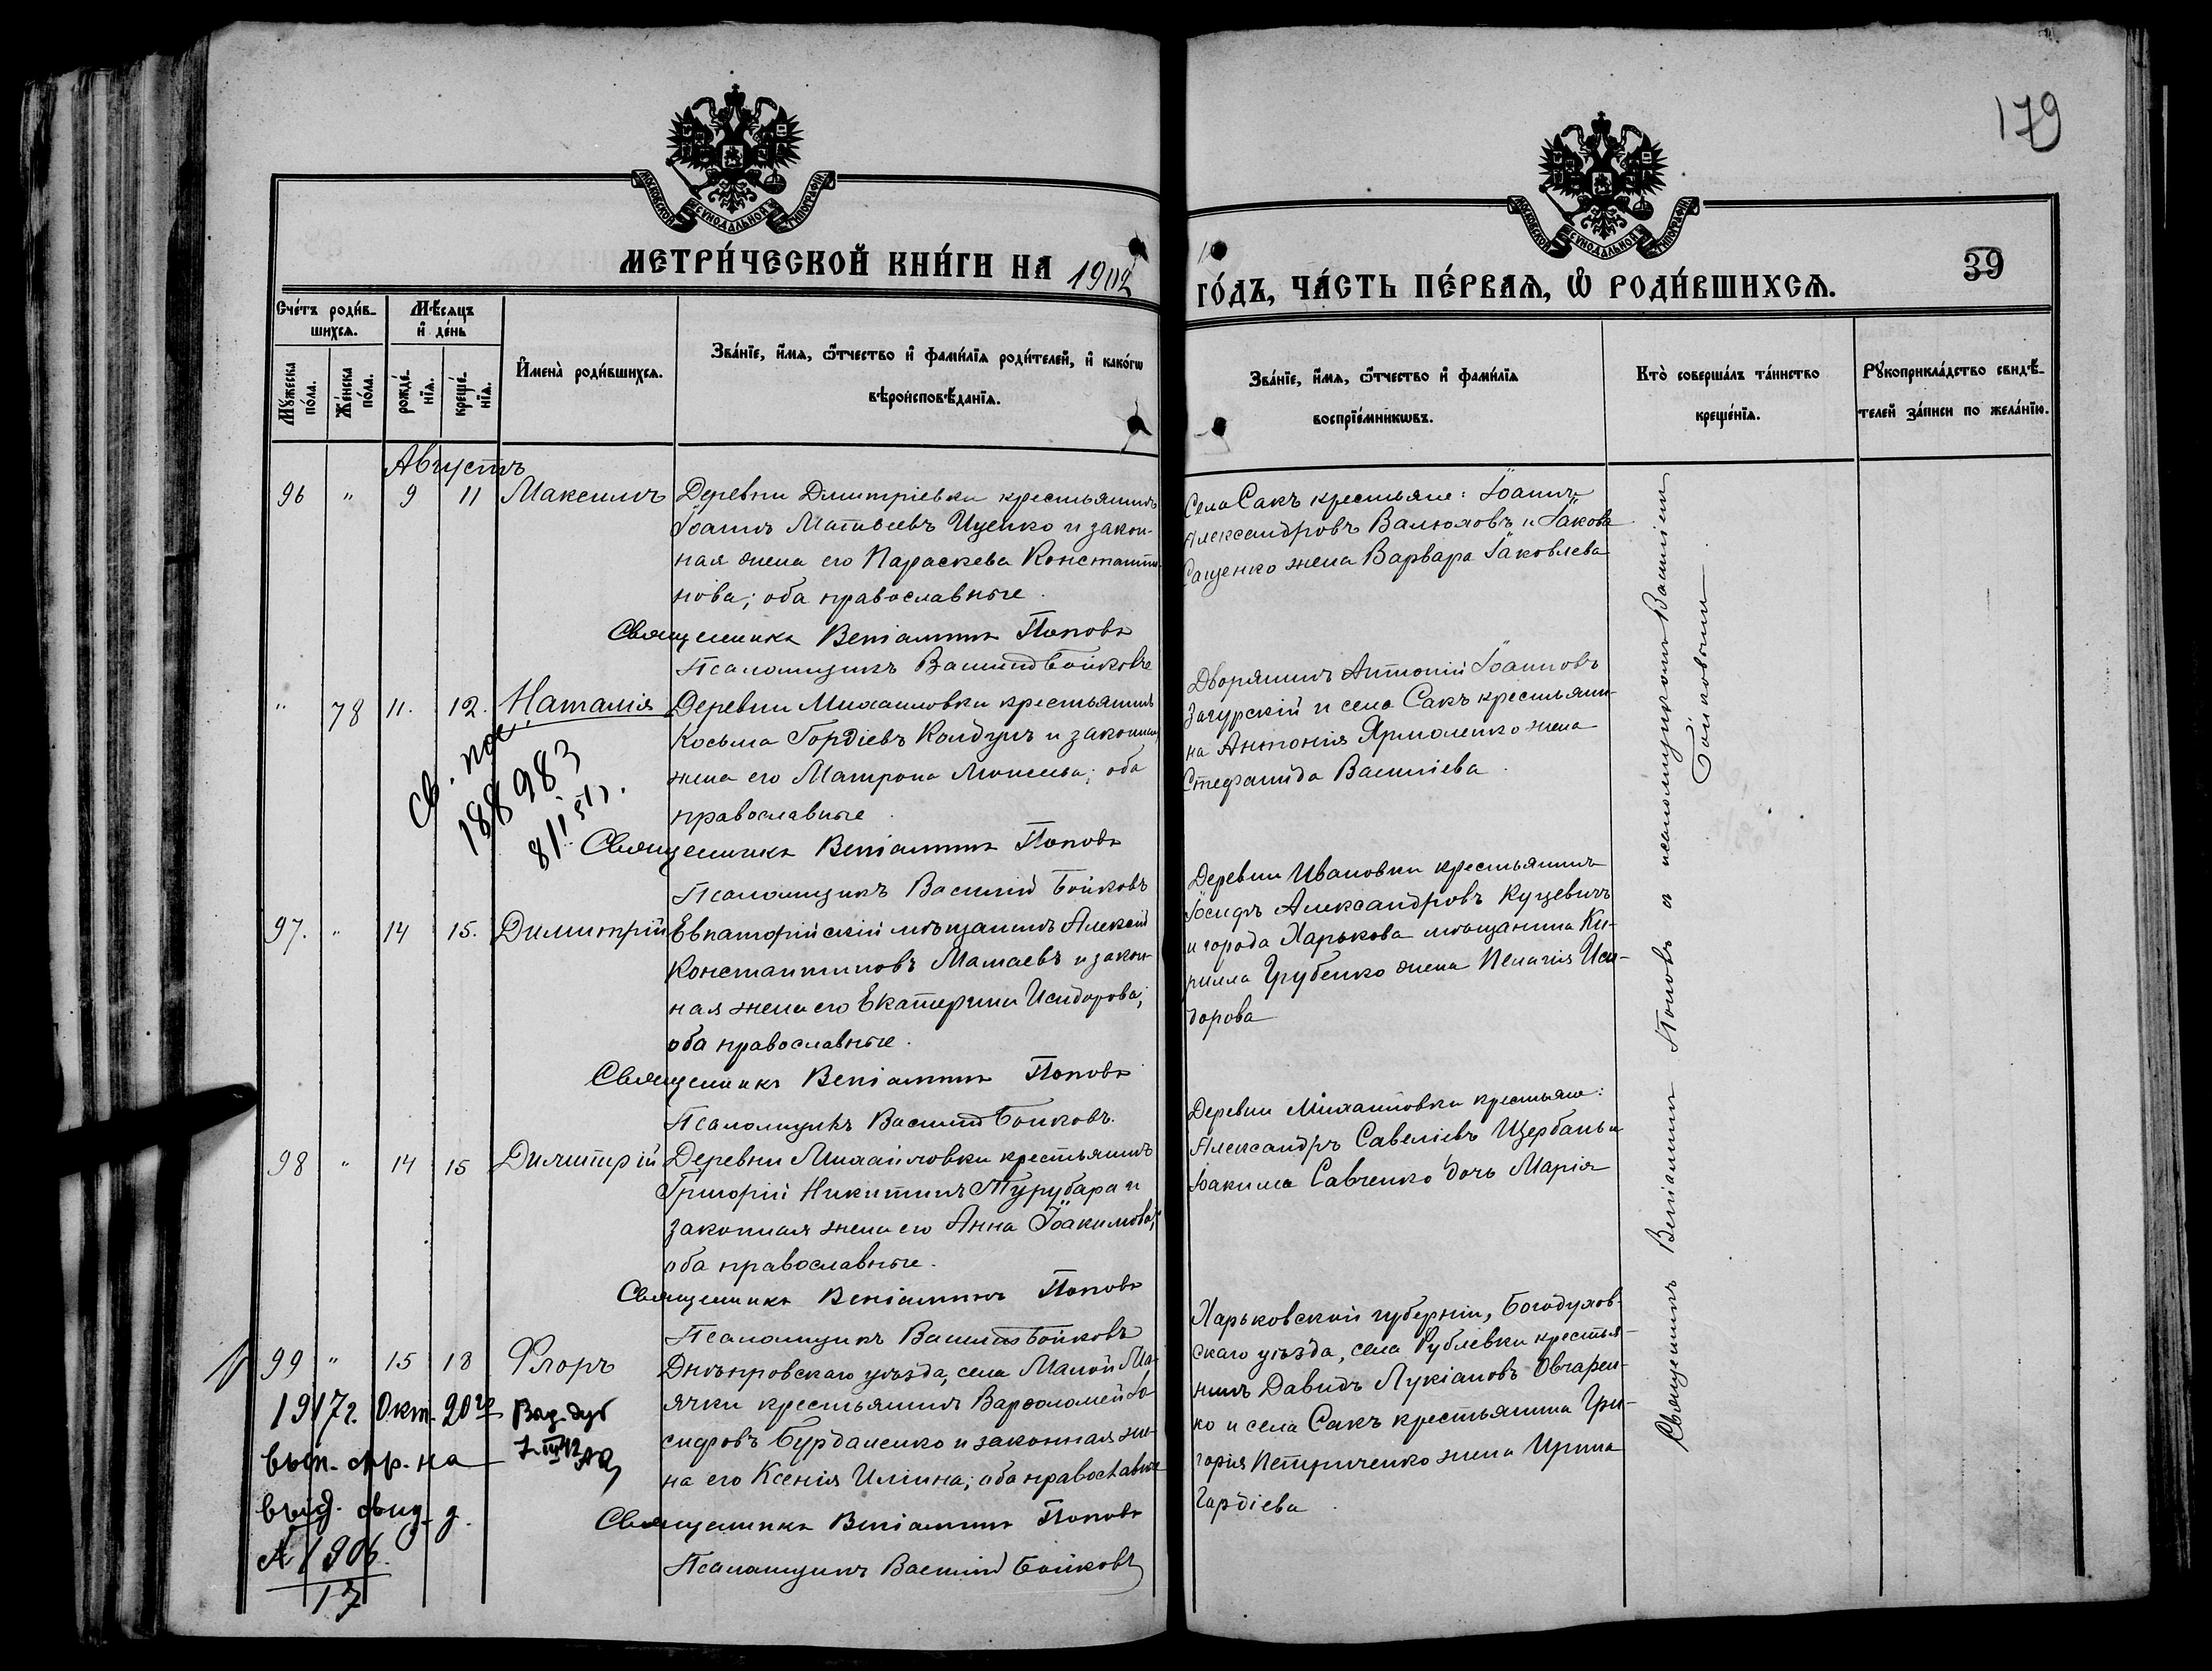 179
МОСКОВСКОЙ СУНОДАЛЬНОЙ ТИПОГРАФІИ
МОСКОВСКОЙ СУНОДАЛЬНОЙ ТИПОГРАФІИ
МЕТРИ́ЧЕСКОЙ КНИ́ГИ НА 1902
ГО́ДЪ, ЧА́СТЬ ПЕ́РВАѦ, Ѽ РОДИ́ВШИХСѦ.
39
Сче́тъ роди́в-
шихсѧ.
Мѣ́сяцъ
и҆ де́нь
Мꙋ́жеска
по́ла.
Же́нска
по́ла.
рожде́-
нїѧ.
креще́-
нїѧ.
И҆мена̀ роди́вшихсѧ.
Зва́нїе, и҆́мѧ, ѻ҆́тчество и҆ фами́лїѧ роди́телей, и҆ како́гѡ
вѣроисповѣ́данїѧ.
Зва́нїе, и҆́мѧ, ѻ҆́тчество и҆ фами́лїѧ
воспрїе́мникѡвъ.
Кто̀ соверша́лъ та́инство
креще́нїѧ.
Рꙋкоприкла́дство свидѣ́-
телей за́писи по жела́нїю.
Августъ
96 " 9 11 Максимъ
Деревни Дмитріевки крестьянинъ
Іоаннъ Матвѣевъ Ищенко и закон-
ная жена его Параскева Константи-
нова; оба православные.
Священникъ Веніаминъ Поповъ
Псаломщикъ Василій Бойковъ
Села Сакъ крестьяне: Іоаннъ
Александровъ Валюховъ и Іакова
Сащенко жена Варвара Іаковлева
" 78 11. 12. Наталія
Деревни Михайловки крестьянинъ
Косьма Гордіевъ Колдунъ и законная
жена его Матрона Моисеева; оба
православные.
Священникъ Веніаминъ Поповъ
Псаломщикъ Василій Бойковъ
188983
Дворянинъ Антоній Іоанновъ
Загурскій и села Сакъ крестьяни-
на Антонія Ярмоленко жена
Стефанида Василіева.
97. " 14 15. Димитрій
Евпаторійскій мѣщанинъ Алексій
Константиновъ Мамаевъ и закон-
ная жена его Екатерина Исидорова;
оба православные.
Священникъ Веніаминъ Поповъ
Псаломщикъ Василій Бойковъ.
Деревни Ивановки крестьянинъ
Іосифъ Александровъ Куцевичъ
и города Харькова мѣщанина Ки-
рилла Грубенко жена Пелагія Иси-
дорова
98 " 14 15 Димитрій
Деревни Михайловки крестьянинъ
Григорій Никитинъ Турубара и
законная жена его Анна Іоакимова;
оба православные.
Священникъ Веніаминъ Поповъ
Псаломщикъ Василій Бойковъ
Деревни Михайловки крестьяне:
Александръ Савеліевъ Щербань и
Іоакима Савченко дочь Марія
99 " 15 18 Флоръ
Днѣпровскаго уѣзда, села Малой Ма-
ячки крестьянинъ Варѳоломей Іо-
сифовъ Бурдаленко и законная же-
на его Ксенія Иліина; оба православные
Священникъ Веніаминъ Поповъ
Псаломщикъ Василій Бойковъ
Харьковской губерніи, Богодухов-
скаго уѣзда, села Рублевки крестья-
нинъ Давидъ Лукіановъ Овчарен-
ко и села Сакъ крестьянина Гри-
горія Петриченко жена Ирина
Гордіева.
1917г. Окт. 20го
вып. спр. на
выд. свид.
№ 1906
17
Священникъ Веніаминъ Поповъ и псаломщикомъ Василіемъ
Бойковымъ